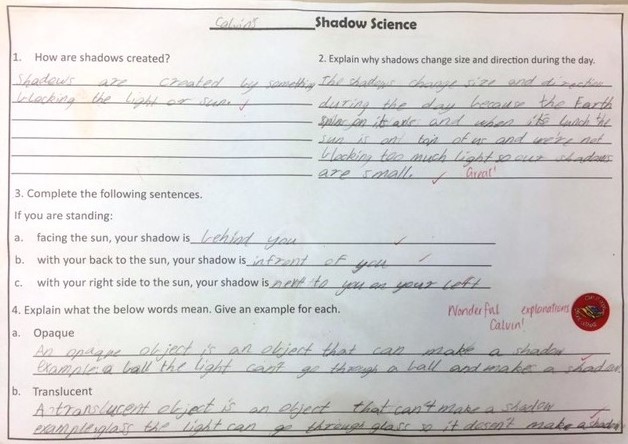 Calvin's Shadow Science
1. How are shadows created?
Shadows are created by something
blocking the light or sun.
2. Explain why shadows change size and direction during the day.
The shadows change size and direction
during the day because the Earth
spins on its axis and when it's lunch the
sun is on top of us and we're not
blocking too much light so our shadows
are small.
Great!
3. Complete the following sentences.
If you are standing:
a. facing the sun, your shadow is behind you
b. with your back to the sun, your shadow is infront of you
c. with your right side to the sun, your shadow is next to you on your left
4. Explain what the below words mean. Give an example for each.
Wonderful explanations
Calvin!
a. Opaque
An opaque object is an object that can make a shadow
Example: a ball the light can't go through a ball and makes a shadow.
b. Translucent
A translucent object is an object that can't make a shadow
example: glass the light can go through glass so it doesn't make a shadow